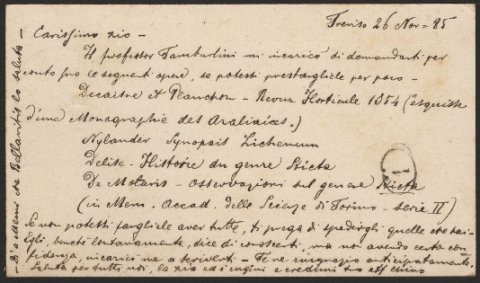 Treviso 26 Nov - 85
Carissimo zio -
Il professor Tamburlini mi incaricò di domandarti per
conto suo le seguenti opere, se potesti prestargliele per poco -
Decaisne et Planchon - Revue Horticule 1854 (Esquisse
d'une Monographie des Araliaices.)
Nylander Synopsis Lichenum
Delise - Histoire du genre Sticta
De Notaris - Osservazioni sul genere Sticta
(in Mem. Accad. delle Scienze di Torino - serie II)
1
Se non potesti fargliele aver tutte, ti prega di spedirgli quelle che hai -
Egli, lontanamente, dice di conoscerti, ma non avendo certa con-
fidenza, incaricò me a scriverti - Te ne ringrazio anticipatamente.
Saluta per tutti noi, la zia ed i cugini e credimi tuo aff
de Bellantis lo saluta -